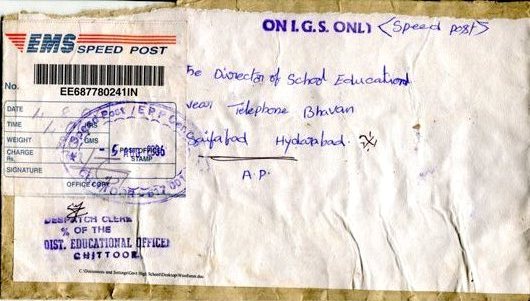 EMS SPEED POST
No. EE687780241IN
DATE
TIME HRS
WEIGHT GMS
CHARGE Rs.
POST OFFICE
STAMP
SIGNATURE
OFFICE COPY
ON I.G.S. ONLY <Speed post>
he Director of School Education
near Telephone Bhavan
Saifabad Hyderabad.
A.P.
DESPATCH CLERK
% OF THE
DIST. EDUCATIONAL OFFICER
CHITTOOR